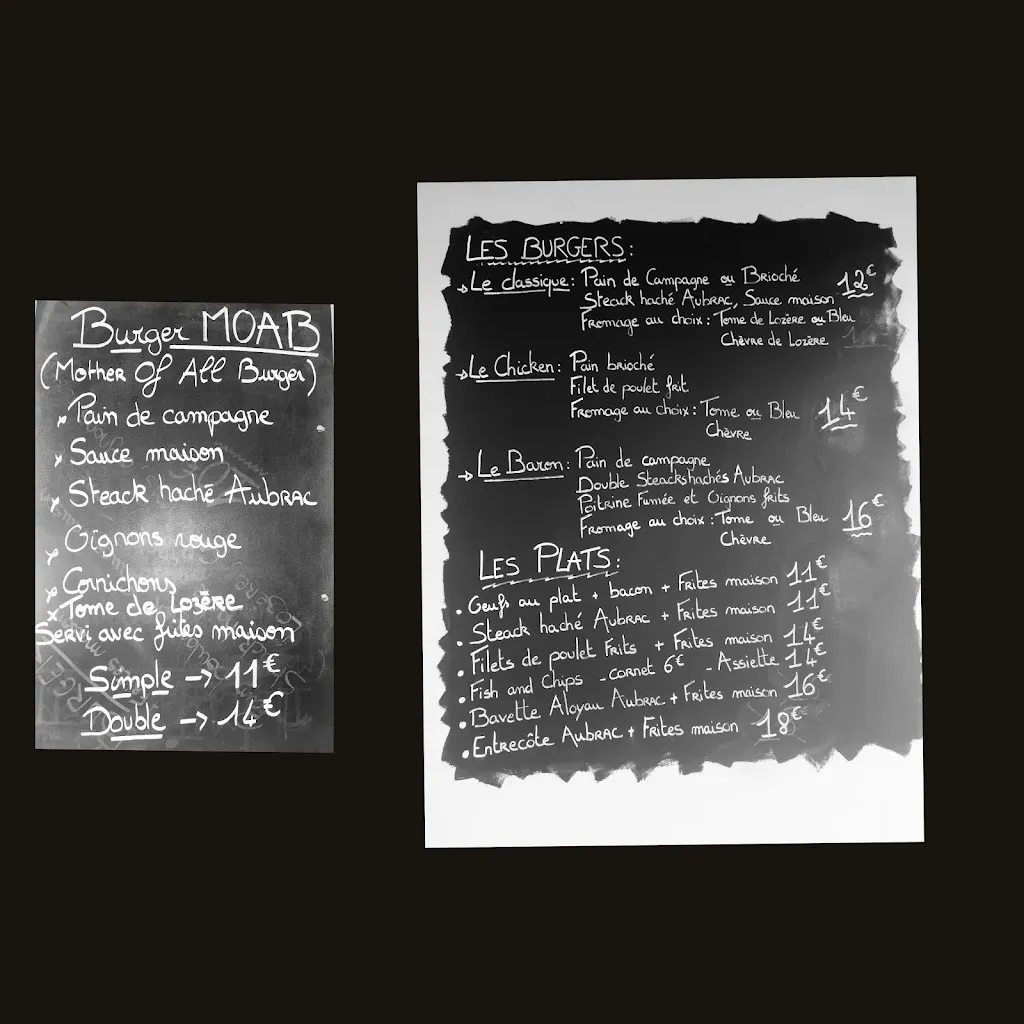 Burger MOAB
(Mother Of All Burger)
Pain de campagne
Sauce maison
Steack haché Aubrac
Oignons rouge
Cornichons
Tome de Lozère
Servi avec frites maison
Simple -> 11€
Double -> 14€
LES BURGERS:
-> Le classique: Pain de Campagne ou Brioché
Steack haché Aubrac, Sauce maison 12€
Fromage au choix: Tome de Lozère ou Bleu
Chèvre de Lozère
-> Le Chicken: Pain brioché
Filet de poulet frit
Fromage au choix: Tome ou Bleu 14€
Chèvre
-> Le Baron: Pain de campagne
Double Steackshachés Aubrac
Poitrine Fumée et Oignons frits
Fromage au choix: Tome ou Bleu 16€
Chèvre
LES PLATS:
• Oeufs au plat + bacon + Frites maison 11€
• Steack haché Aubrac + Frites maison 11€
• Filets de poulet Frits + Frites maison 14€
• Fish and Chips - cornet 6€ - Assiette 14€
• Bavette Aloyau Aubrac + Frites maison 16€
• Entrecôte Aubrac + Frites maison 18€